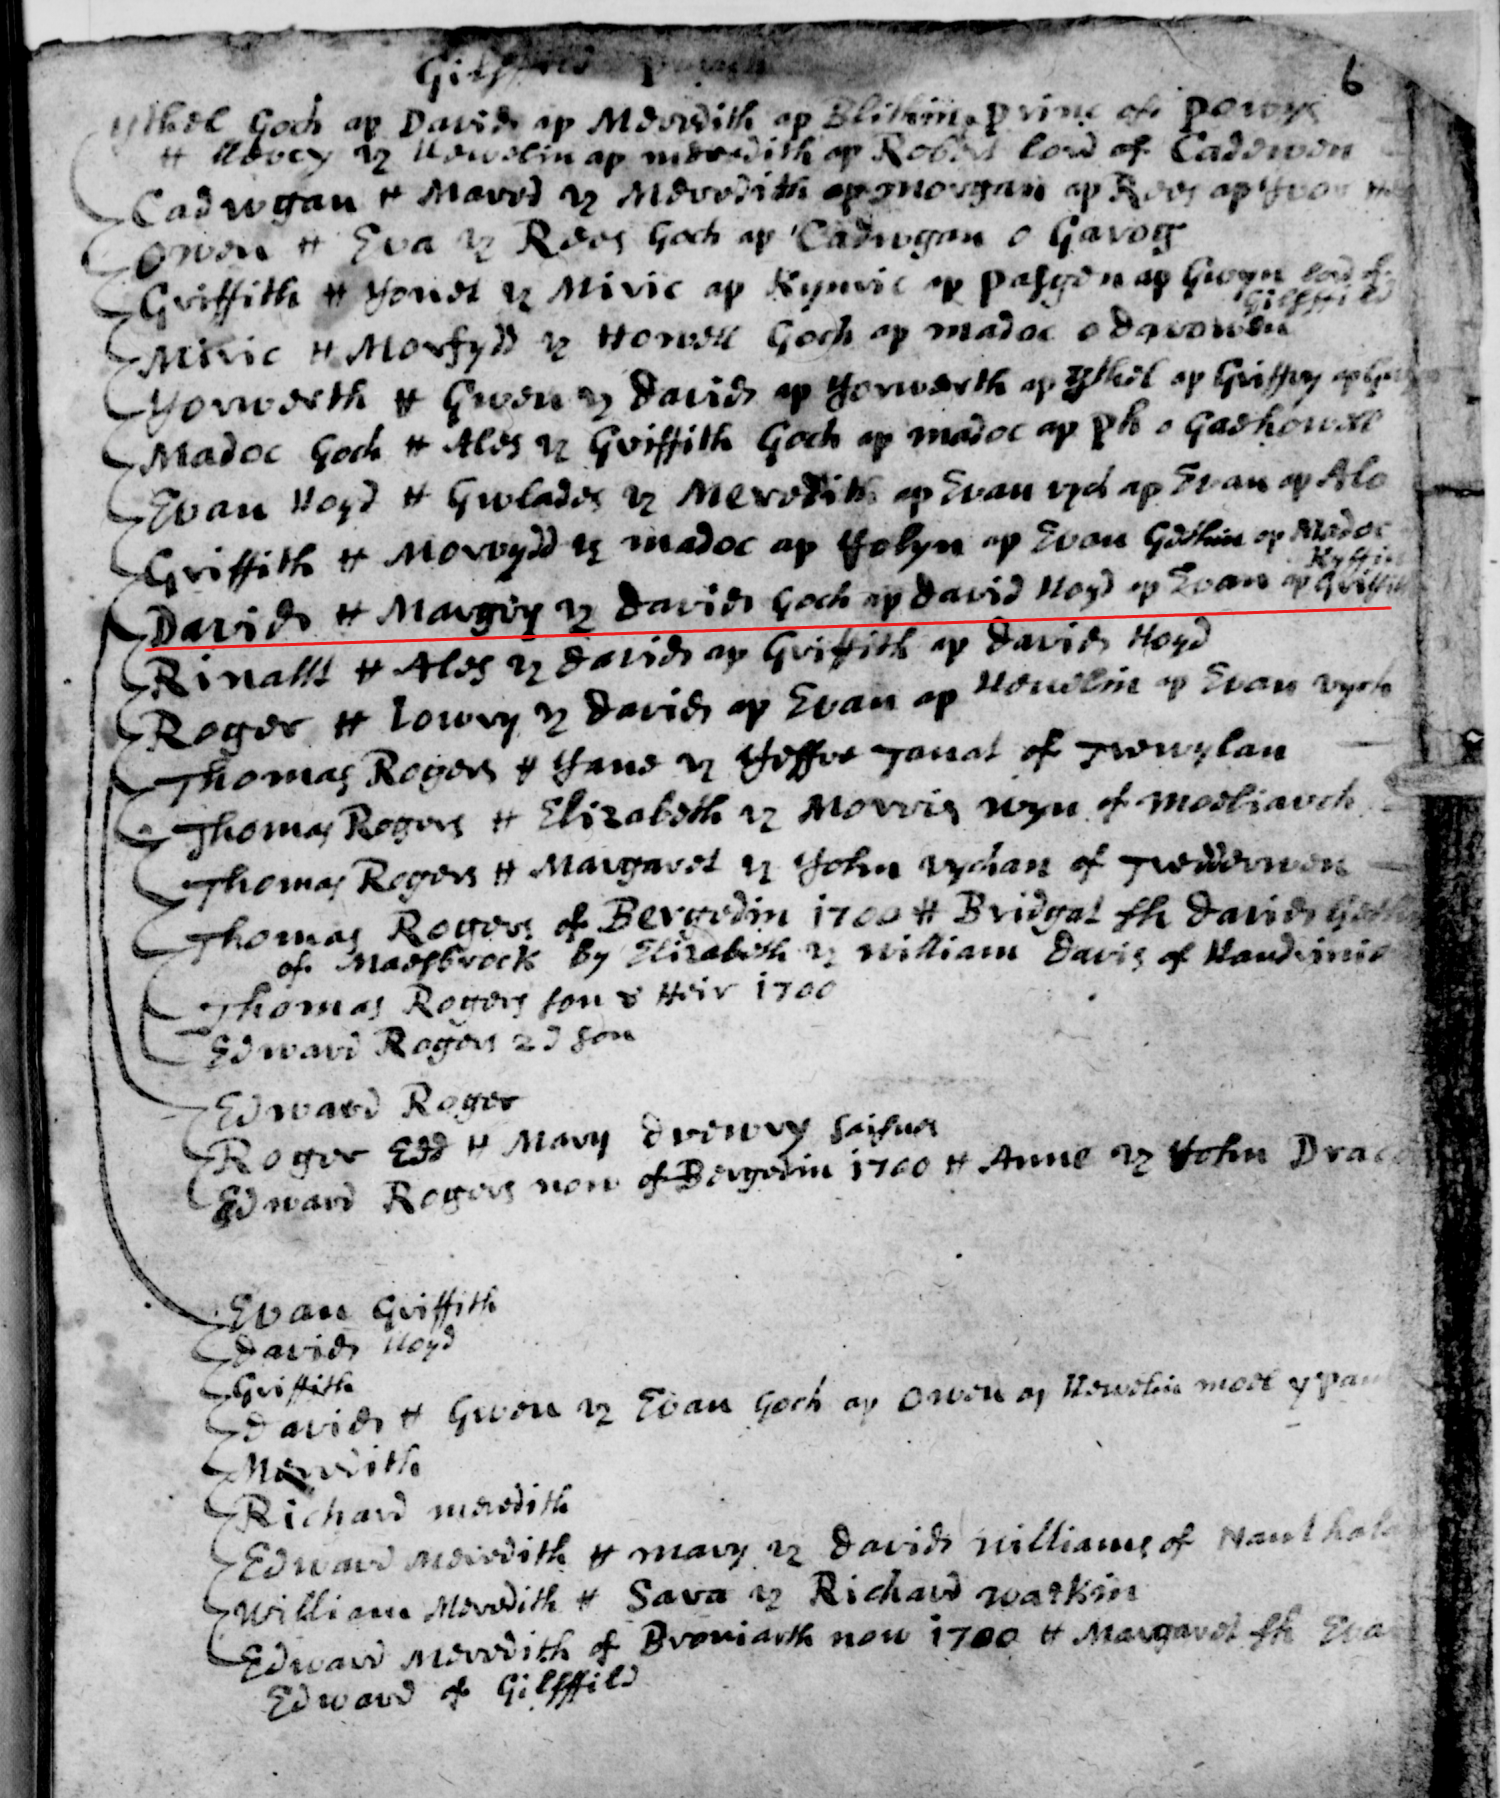 Gilsffild parish
6
ythel Goch ap David ap Meredith ap Blithin prins of Powys
# Nevcy vz Llewelin ap meredith ap Robert lord of Cadewen
Cadwgan # Mared vz Meredith ap morgan ap Rees ap Yvor
Owen # Eva vz Rees Goch ap Cadwgan o Garog
Griffith # Yonet vz Miric ap Kynvric ap Pasgen ap Gwyn lord of
Gilsffild
Miric # Morfydd vz Howell Goch ap madoc o darowen
Yorwerth # Gwen vz David ap Yorwerth ap Ythel ap Griffry ap
Madoc Goch # Ales vz Griffith Goch ap madoc ap Ph o Gaerhowell
Evan lloyd # Gwlades vz Meredith ap Evan vych ap Evan ap Alo
Griffith # Morvydd vz madoc ap Yolyn ap Evan Gethin ap Madoc
Kyffin
David # Margery vz David Goch ap David lloyd ap Evan ap Griffith
Rinallt # Ales vz David ap Griffith ap David lloyd
Roger # Lowry vz David ap Evan ap Llewelin ap Evan vych
Thomas Rogers # Yane vz Yeffre Tanat of Trewylan
Thomas Rogers # Elizabeth vz Morris wyn of moeliarch
Thomas Rogers # Margaret vz Yohn vychan of Tredderwen
Thomas Rogers of Bergedin 1700 # Bridgat fh David
of Maesbrock by Elizabeth vz William Davis of Llandrinio
Thomas Rogers son & Heir 1700
Edward Rogers 2d son
Edward Roger
Roger Edd # Mary drewry saisnes
Edward Rogers now of Bergedin 1700 # Anne vz Yohn
Evan Griffith
David lloyd
Griffith
David # Gwen vz Evan Goch ap Owen ap Llewelin moel y pant
Meredith
Richard meredith
Edward meredith # mary vz David Williams of
William Meredith # Sara vz Richard watkin
Edward Meredith of Broniarth now 1700 # Margaret fh
Edward of Gilsffild